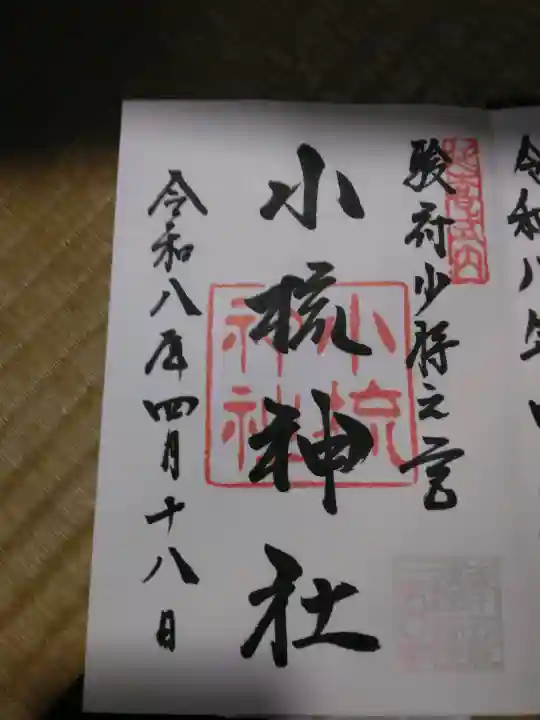 令和八年四
延喜式内
駿府少将之宮
小梳神社
小梳
神社
令和八年四月十八日